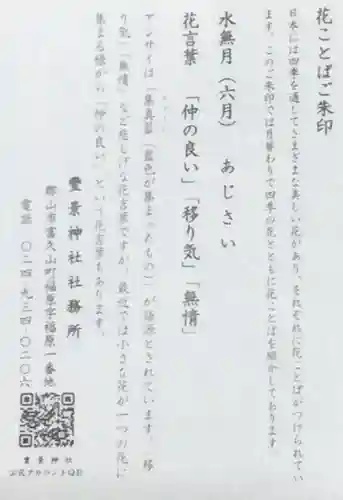 花ことばご朱印
日本には四季を通してさまざまな美しい花があり、それぞれに花ことばがつけられてい
ます。このご朱印では月替わりで四季の花とともに花ことばを紹介しております
水無月（六月）　あじさい
花言葉　「仲の良い」「移り気」「無情」
アジサイは「集真藍（藍色が集まったもの）」が語源とされています。移
り気」「無情」など悲しげな花言葉ですが、最近では小さな花が一つの花に
集まる様から「仲の良い」という花言葉もあります。
靈景神社社務所
郡山市富久山町福原字福原一番地
電話　〇二四‐九三四‐〇二〇六
靈景神社
公式アカウントQR